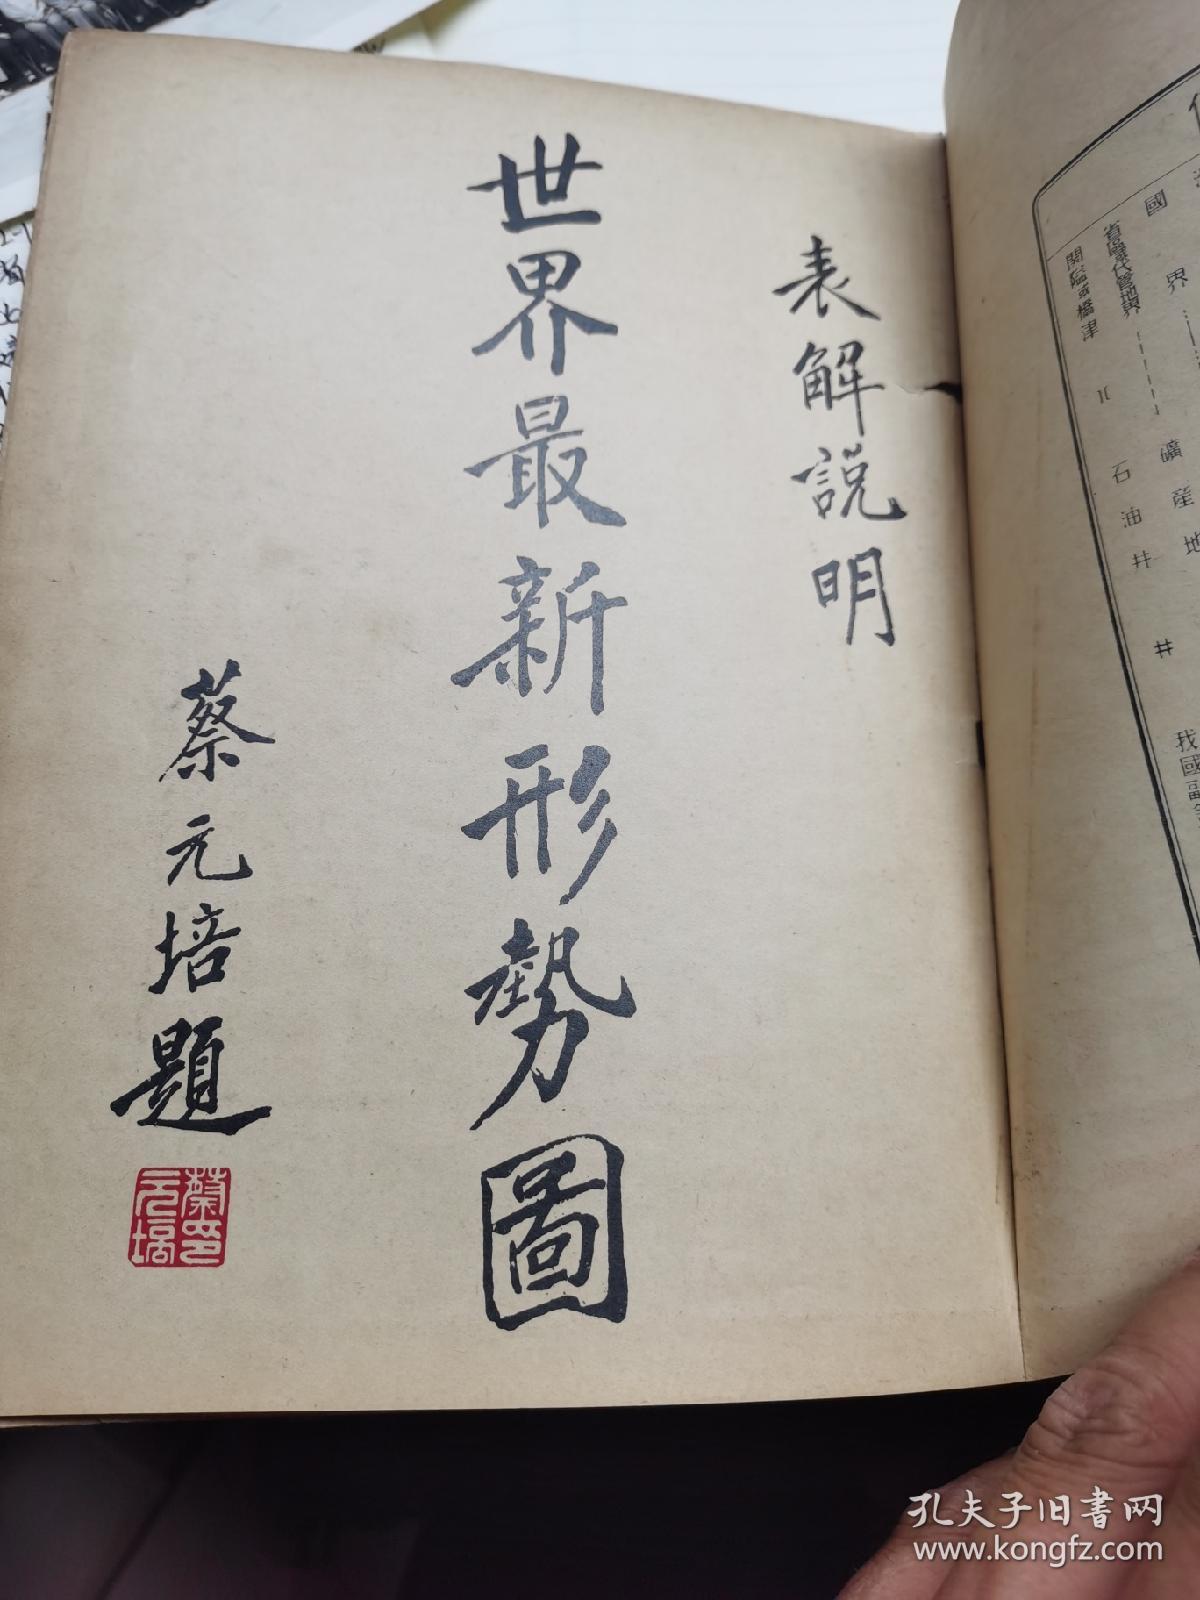 表解説明
世界最新形勢圖
蔡元培題
蔡元培印
國界
省區或代管地界
關隘或橋津
礦產地
石油井
井
我國
孔夫子旧书网
www.kongfz.com